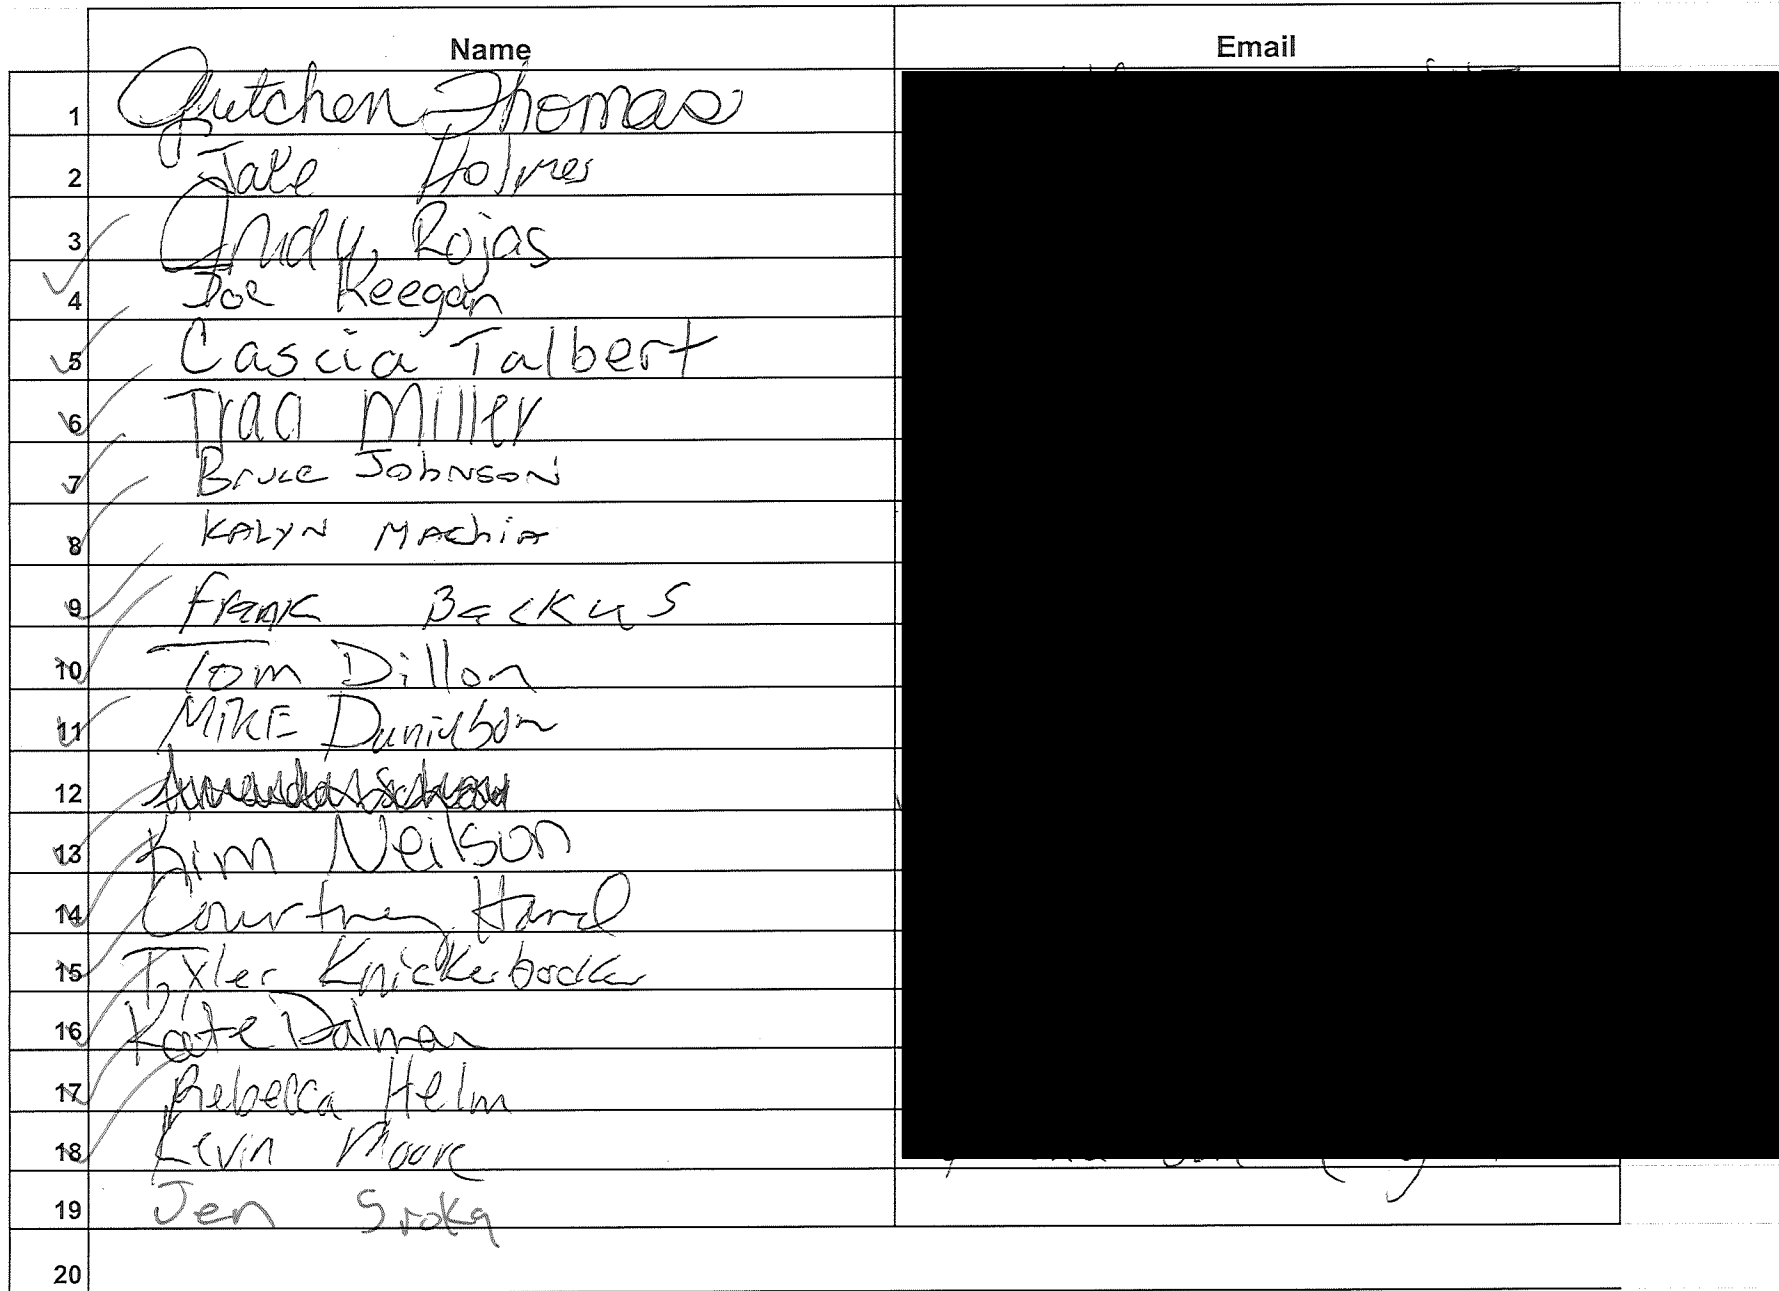 Name Email
1 Gretchen Thomas
2 Jake Holmes
3 Andy Rojas
4 Joe Keegan
5 Cascia Talbert
6 Traci Miller
7 Bruce Johnson
8 KALYN MAchiA
9 Frank Backus
10 Tom Dillon
11 MIKE Danielson
12
13 Kim Neilson
14 Courtney Hand
15 Tyler Knickerbocker
16 Kate Dalman
17 Rebecca Helm
18 Kevin Moore
19 Jen Sroka
20